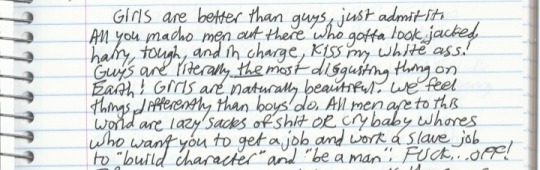 Girls are better than guys, just admit it.
All you macho men out there who gotta look jacked,
hairy, tough, and in charge, kiss my white ass!
Guys are literally the most disgusting thing on
Earth! Girls are naturally beautiful. We feel
things differently than boys do. All men are to this
world are lazy sacks of shit OR crybaby whores
who want you to get a job and work a slave job
to "build character" and "be a man". Fuck...off!